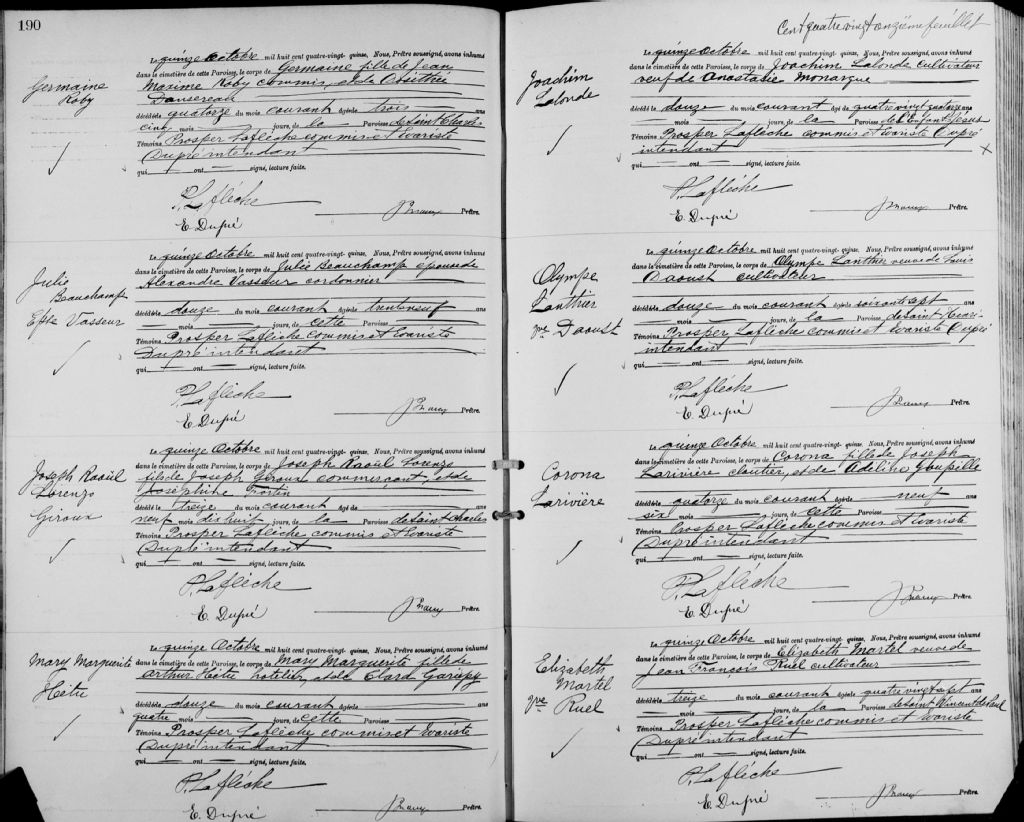 190
Germaine
Roby
Le quinze Octobre mil huit cent quatre-vingt- quinze. Nous, Prêtre soussigné, avons inhumé
dans le cimetière de cette Paroisse, le corps de Germaine fille de Jean
Maxime Roby commis, et de
Dansereau
décédée quatorze du mois courant âgée de trois ans
cinq mois jours, de la Paroisse de Saint Charles
Témoins Prosper Laflèche commis et Evariste
Dupré intendant
qui ont signé, lecture faite.
P. Laflèche
E. Dupré
Prêtre.
Julie
Beauchamp
Epse Vasseur
Le quinze Octobre mil huit cent quatre-vingt- quinze. Nous, Prêtre soussigné, avons inhumé
dans le cimetière de cette Paroisse, le corps de Julie Beauchamp epouse de
Alexandre Vasseur cordonnier
décédée douze du mois courant âgée de trente neuf ans
mois jours, de cette Paroisse
Témoins Prosper Laflèche commis et Evariste
Dupré intendant
qui ont signé, lecture faite.
P. Laflèche
E. Dupré
Prêtre.
Joseph Raoül
Lorenzo
Giroux
Le quinze Octobre mil huit cent quatre-vingt- quinze. Nous, Prêtre soussigné, avons inhumé
dans le cimetière de cette Paroisse, le corps de Joseph Raoül Lorenzo
fils de Joseph Giroux commerçant, et de
Joséphine Fortin
décédé le treize du mois courant âgé de ans
neuf mois dix huit jours, de la Paroisse de Saint Charles
Témoins Prosper Laflèche commis et Evariste
Dupré intendant
qui ont signé, lecture faite.
P. Laflèche
E. Dupré
Prêtre.
Mary Marguerite
Hétu
Le quinze Octobre mil huit cent quatre-vingt- quinze. Nous, Prêtre soussigné, avons inhumé
dans le cimetière de cette Paroisse, le corps de Mary Marguerite fille de
Arthur Hétu hotelier, et de Clara Gariépy
décédée douze du mois courant âgée de ans
quatre mois jours, de cette Paroisse
Témoins Prosper Laflèche commis et Evariste
Dupré intendant
qui ont signé, lecture faite.
P. Laflèche
E. Dupré
Prêtre.
Cent quatre vingt onzième feuillet
Joachim
Lalonde
Le quinze Octobre mil huit cent quatre-vingt- quinze. Nous, Prêtre soussigné, avons inhumé
dans le cimetière de cette Paroisse, le corps de Joachim Lalonde cultivateur
veuf de Anastasie Monarque
décédé le douze du mois courant âgé de quatre vingt quatorze ans
mois jours, de la Paroisse de l'Enfant Jésus
Témoins Prosper Laflèche commis et Evariste Dupré
intendant
qui ont signé, lecture faite.
P. Laflèche
E. Dupré
Prêtre.
Olympe
Lanthier
Vve Daoust
Le quinze Octobre mil huit cent quatre-vingt- quinze. Nous, Prêtre soussigné, avons inhumé
dans le cimetière de cette Paroisse, le corps de Olympe Lanthier veuve de Louis
Daoust cultivateur
décédée douze du mois courant âgée de soixante sept ans
mois jours, de la Paroisse de Saint Henri
Témoins Prosper Laflèche commis et Evariste Dupré
intendant
qui ont signé, lecture faite.
P. Laflèche
E. Dupré
Prêtre.
Corona
Larivière
Le quinze Octobre mil huit cent quatre-vingt- quinze. Nous, Prêtre soussigné, avons inhumé
dans le cimetière de cette Paroisse, le corps de Corona fille de Joseph
Larivière cloutier, et de Adelina Goupille
décédée le quatorze du mois courant âgée de neuf ans
six mois jours, de cette Paroisse
Témoins Prosper Laflèche commis et Evariste
Dupré intendant
qui ont signé, lecture faite.
P. Laflèche
E. Dupré
Prêtre.
Elizabeth
Martel
Vve Ruel
Le quinze Octobre mil huit cent quatre-vingt- quinze. Nous, Prêtre soussigné, avons inhumé
dans le cimetière de cette Paroisse, le corps de Elizabeth Martel veuve de
Jean François Ruel cultivateur
décédée treize du mois courant âgée de quatre vingt sept ans
mois jours, de la Paroisse de Saint Vincent de Paul
Témoins Prosper Laflèche commis et Evariste
Dupré intendant
qui ont signé, lecture faite.
P. Laflèche
E. Dupré
Prêtre.